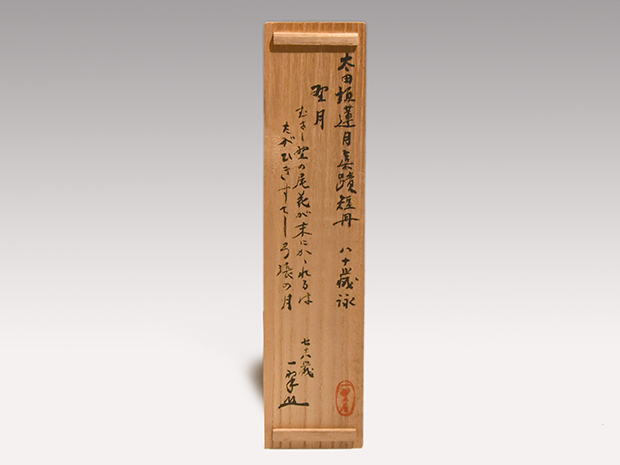 太田垣蓮月真蹟短冊 八十歳詠
野月
むさし野の尾花が末にかゝれるは
たがひきすてし弓張の月
七十八歳